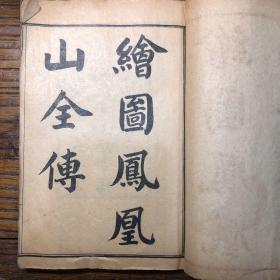 繪圖鳳凰
山全傳